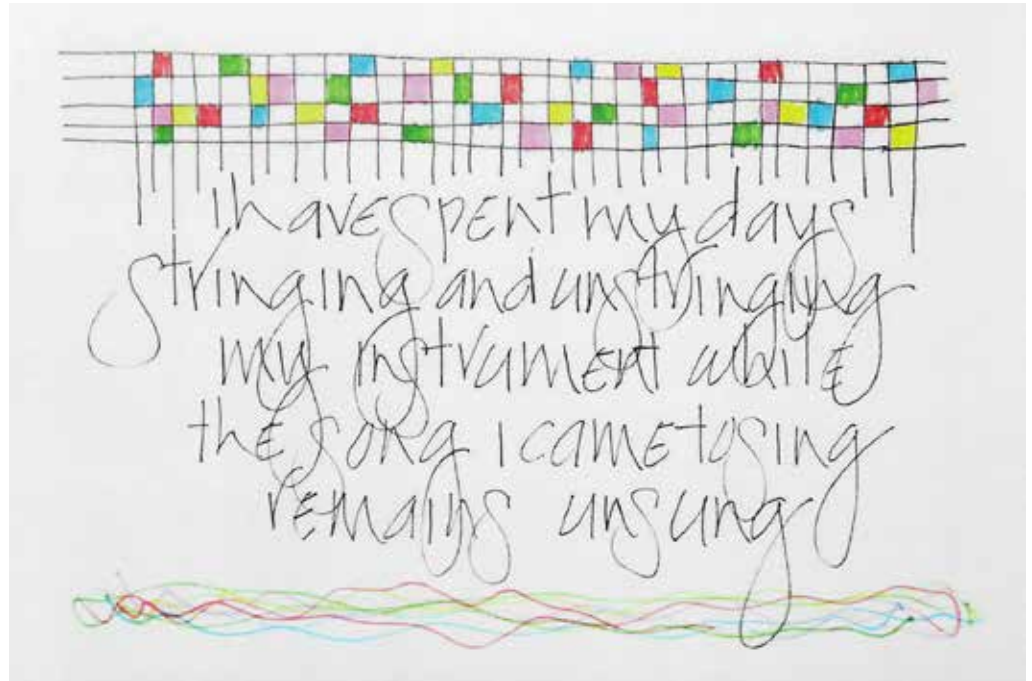 i have spent my days
stringing and unstringing
my instrument while
the song i came to sing
remains unsung